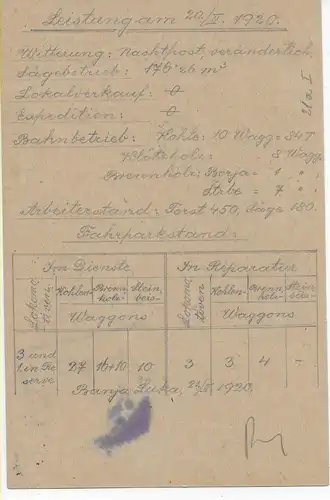 Leistung am 20./II. 1920.
Witterung: Nachtfrost, veränderlich.
Sägebetrieb: 175 cb m³
Lokalverkauf: 0
Expedition: 0
Bahnbetrieb: Kohle: 10 Wagg = 84 T
Klötzholz: 8 Wagg.
Brennholz: Borja = 1 " .
Strbe = 7 " .
Arbeiterstand: Forst 450, Säge 180.
Fahrparkstand:
Im Dienste In Reparatur
Lokomotiven Kohlen- Brennholz- Steinbeis- Lokomotiven Kohlen- Brennholz- Steinbeis-
Waggons Waggons
3 und 1 in Reserve 27 16+10 10 3 3 4 -
Banja Luka, 21/II. 1920.